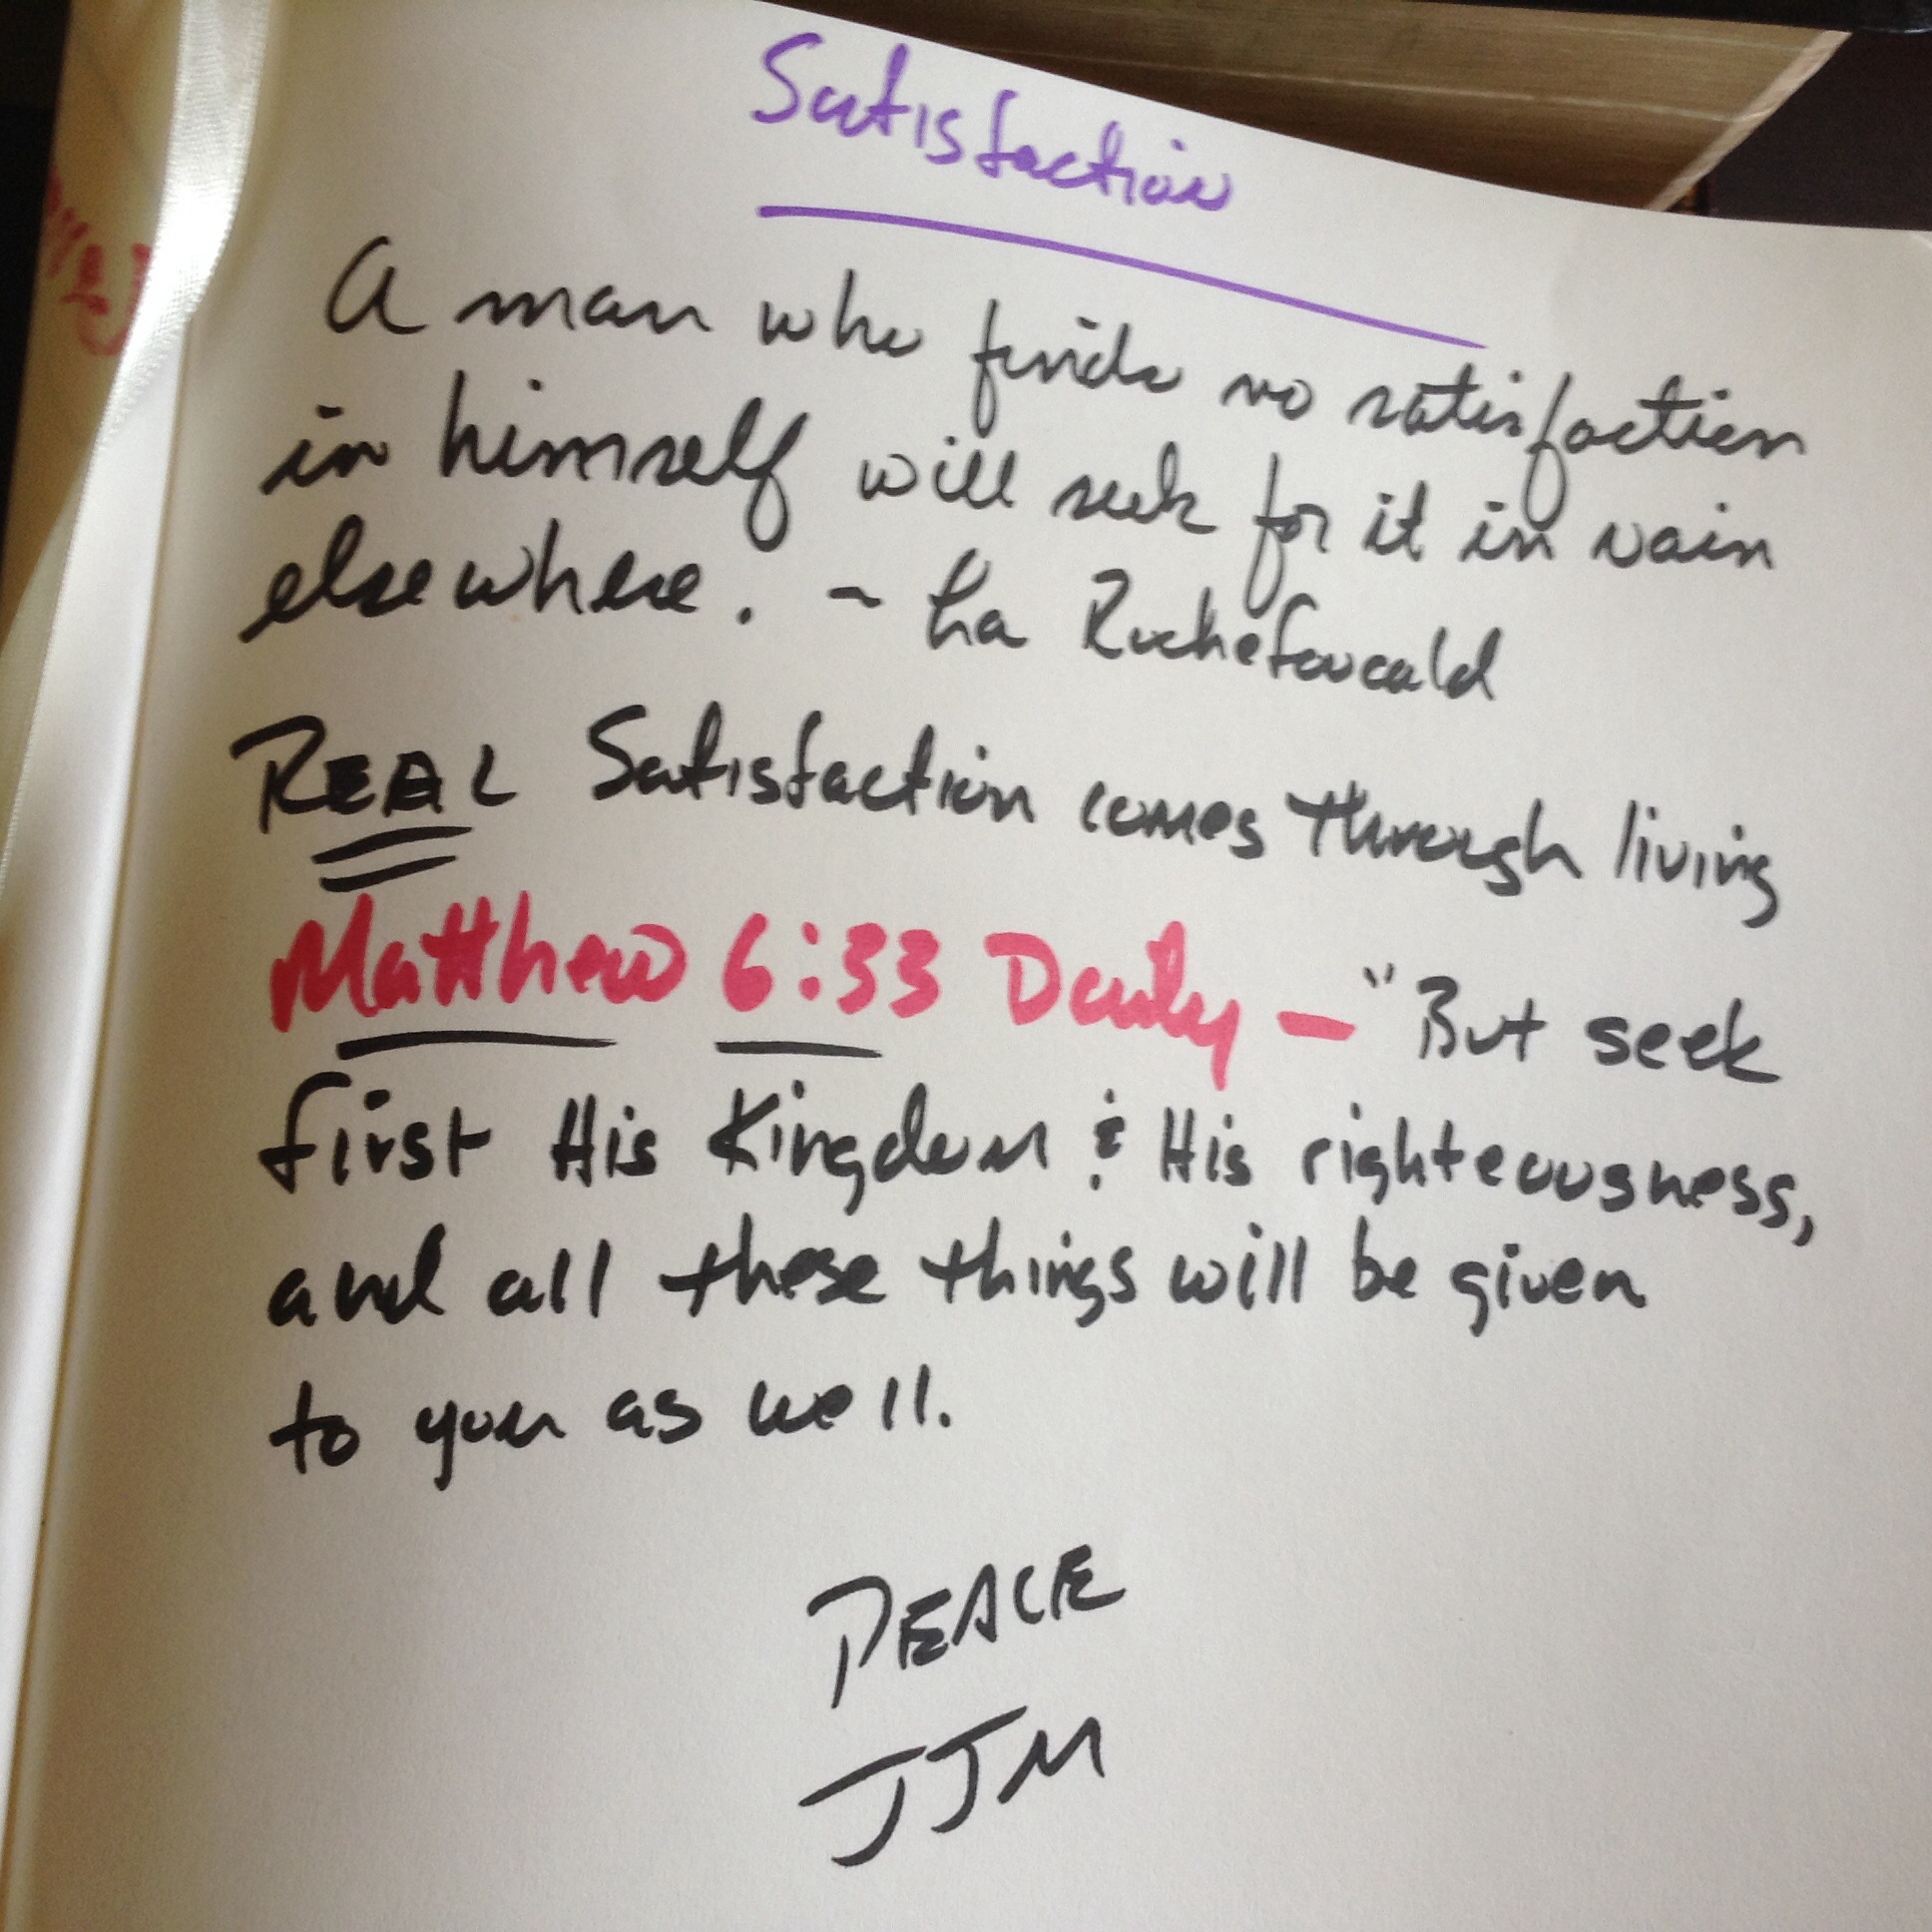 Satisfaction
A man who finds no satisfaction
in himself will seek for it in vain
elsewhere. ~ La Rochefoucald
REAL Satisfaction comes through living
Matthew 6:33 Daily — "But seek
first His Kingdom & His righteousness,
and all these things will be given
to you as well.
PEACE
JJM